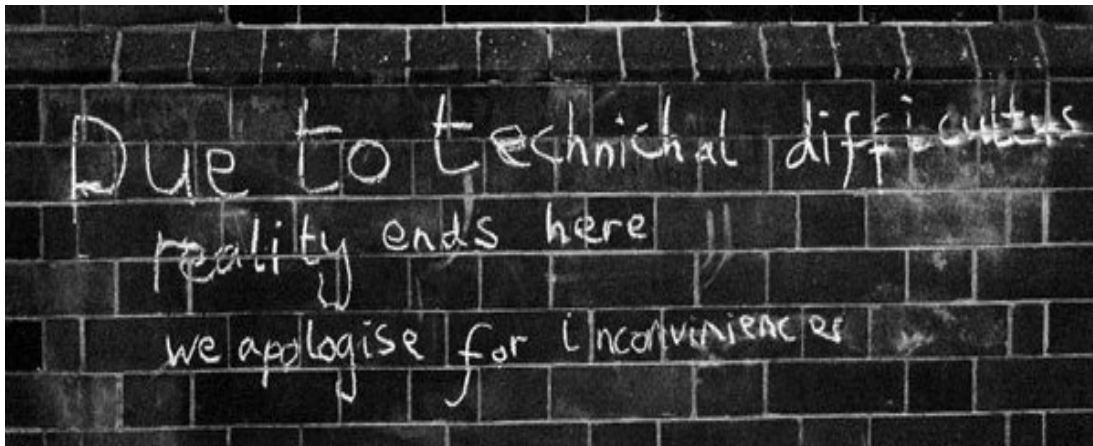 Due to technichal difficultys
reality ends here
we apologise for inconviniences